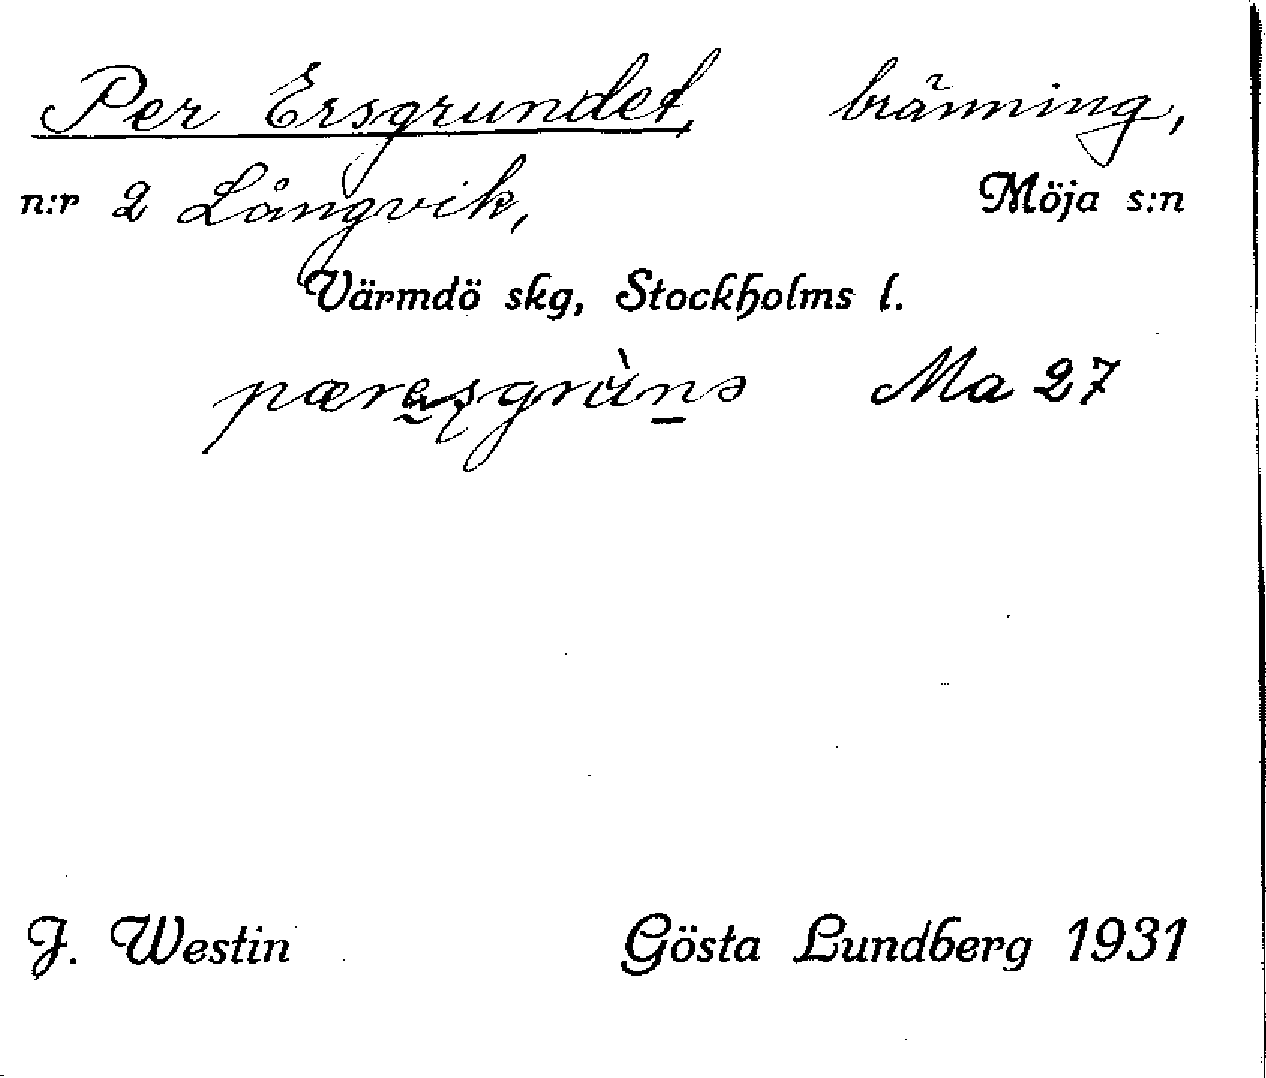 Per Ersgrundet, bränning,
n:r 2 Långvik, Möja s:n
Värmdö skg, Stockholms l.
Ma 27
J. Westin Gösta Lundberg 1931